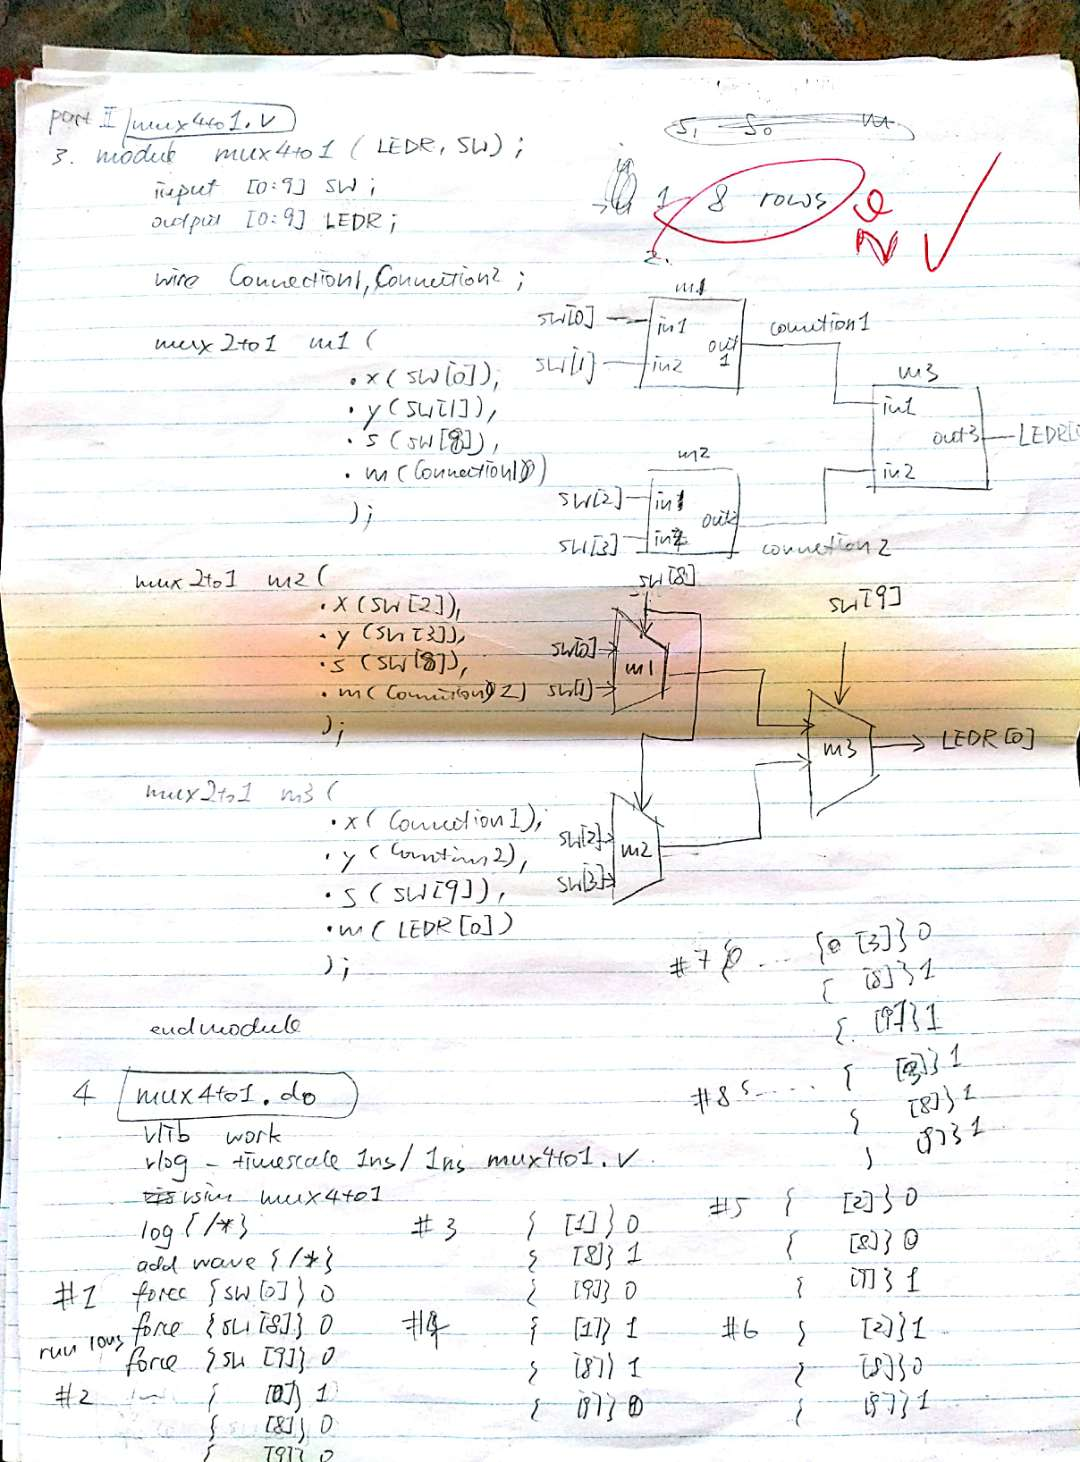 part II mux4to1.v
3. module mux4to1 ( LEDR, SW) ;
input [0:9] SW ;
output [0:9] LEDR ;
wire Connection1, Connection2 ;
mux2to1 m1 (
.x( SW[0]),
.y( SW[1]),
.s ( SW[8]),
.m ( Connection1)
);
mux2to1 m2 (
.x (SW[2]),
.y (SW[3]),
.s (SW[8]),
.m( Connection2)
);
mux2to1 m3 (
.x( Connection1),
.y (Connection2),
.s ( SW[9]),
.m( LEDR[0])
);
endmodule
S1 S0 m
1 8 rows
2.
m1
SW[0] in1
SW[1] in2
out 1
connection1
m3
in1
out3 LEDR[0
in2
m2
SW[2] in1
SW[3] in2
out2
connection2
SW[8]
SW[9]
SW[0]
SW[1]
m1
m3 LEDR[0]
SW[2]
SW[3]
m2
4 mux4to1.do
vlib work
vlog -timescale 1ns/1ns mux4to1.v
vsim mux4to1
log {/*}
add wave {/*}
#1 force {SW[0]} 0
force {SW[8]} 0
run 10ns force {SW[9]} 0
#2 { [0]} 1
{ [8]} 0
{ [9]} 0
#3 { [1]} 0
{ [8]} 1
{ [9]} 0
#4 { [1]} 1
{ [8]} 1
{ [9]} 0
#5 { [2]} 0
{ [8]} 0
{ [9]} 1
#6 { [2]} 1
{ [8]} 0
{ [9]} 1
#7 .... { [3]} 0
{ [8]} 1
{ [9]} 1
#8 .... { [3]} 1
{ [8]} 1
[9]} 1